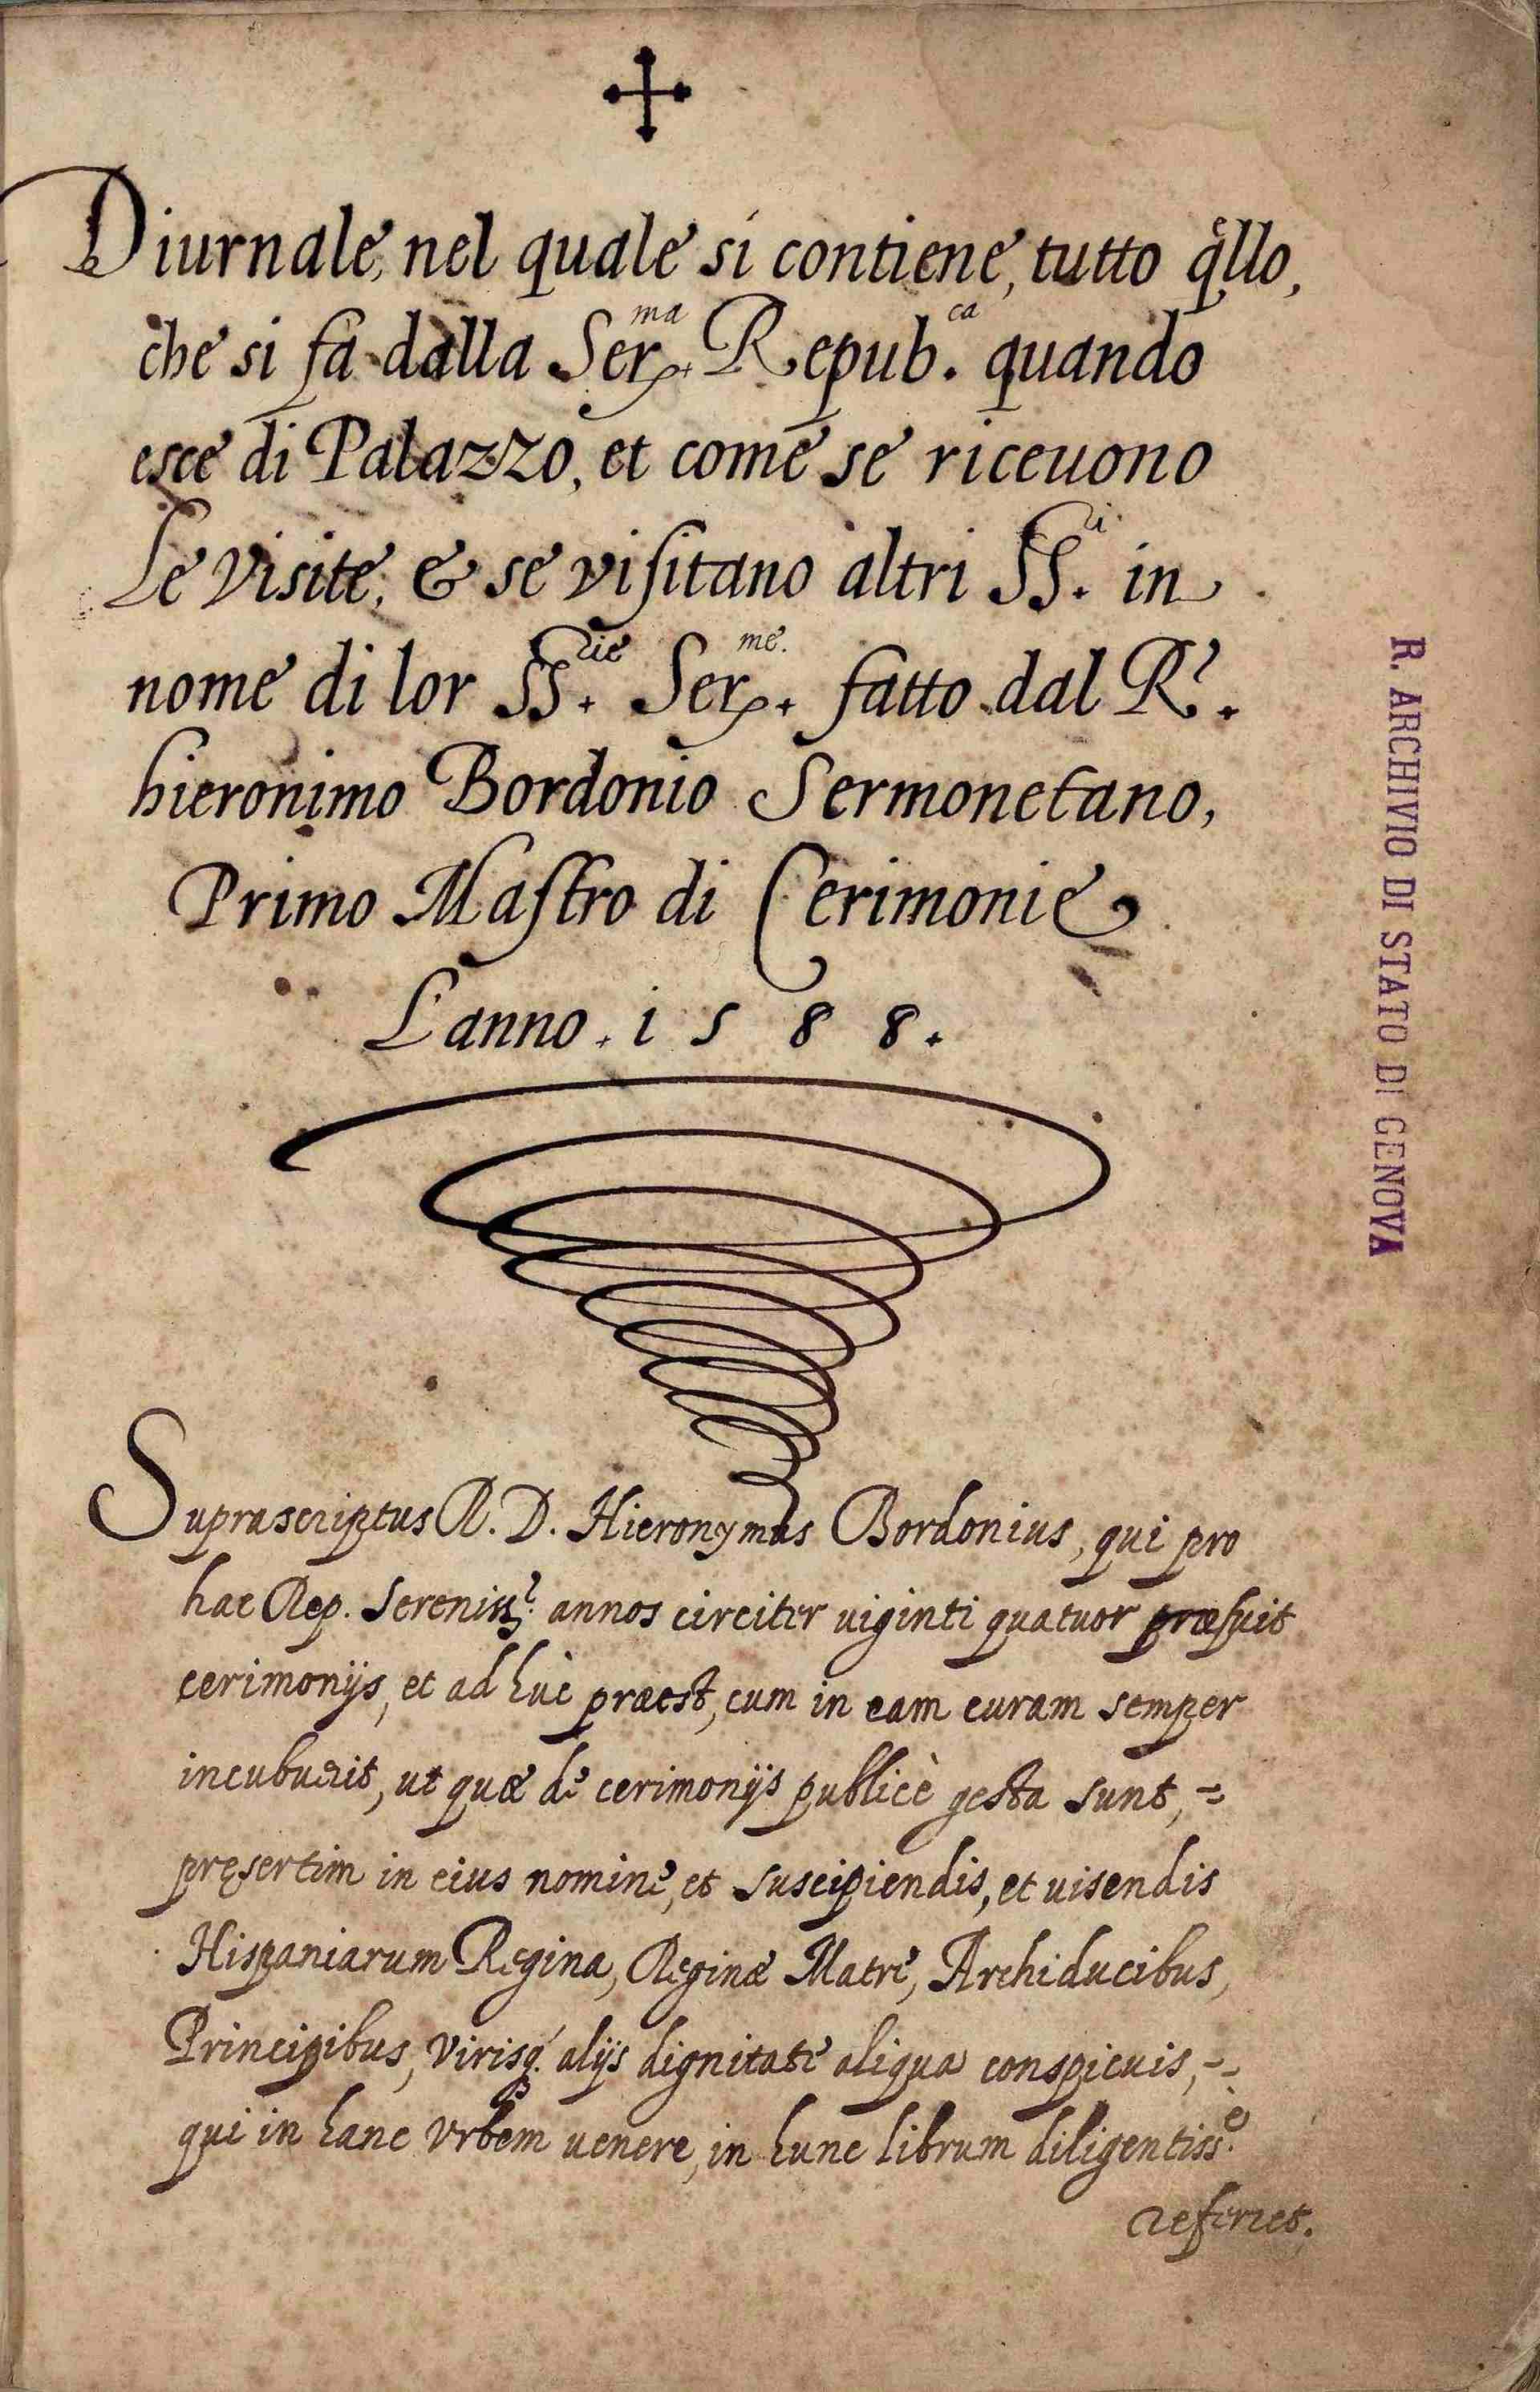 Diurnale, nel quale si contiene, tutto q̊llo,
che si fa dalla Ser.ma Repub.ca quando
esce di Palazzo, et come se riceuono
Le Visite, & se visitano altri SS.i in
nome di lor SS.rie Ser.me. fatto dal R.
hieronimo Bordonio Sermonetano,
Primo Mastro di Cerimonie
L'anno. 1588.
Suprascriptus R. D. Hieronymus Bordonius, qui pro
hac Rep. Sereniss. annos circiter uiginti quatuor præfuit
cerimonijs, et ad huc præest, cum in eam curam semper
incubuerit, ut quæ de cerimonijs publicè gesta sunt, =
pręsertim in eius nomine, et suscipiendis, et uisendis
Hispaniarum Regina, Reginæ Matre, Archiducibus,
Principibus, Virisq. alijs dignitate aliqua conspicuis, =
qui in hanc Vrbem uenere, in hunc librum diligentiss.e
referret.
R. ARCHIVIO DI STATO DI GENOVA